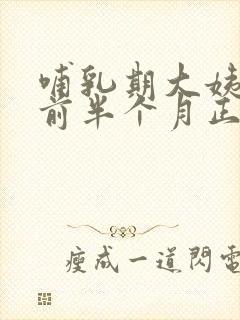 哺乳期大姨
前半个月正
瘦成一道閃電